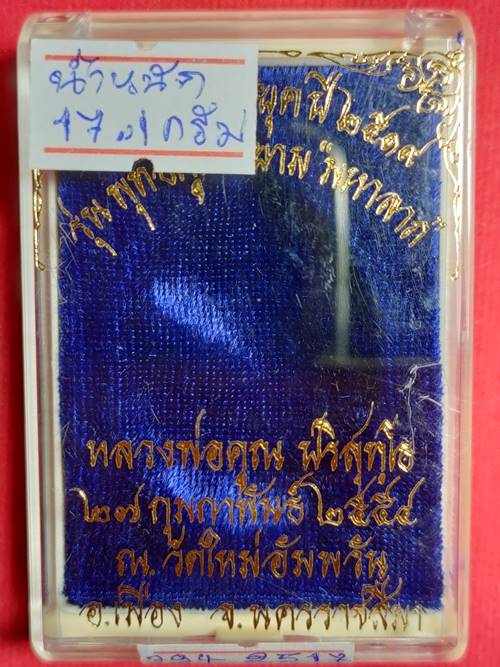 น้ำหนัก
17.1 กรัม
ยุคปี ๒๕๑๙
รุ่น
หลวงพ่อคูณ ปริสุทฺโธ
๒๗ กุมภาพันธ์ ๒๕๕๔
ณ. วัดใหม่อัมพวัน
อ.เมือง จ.นครราชสีมา